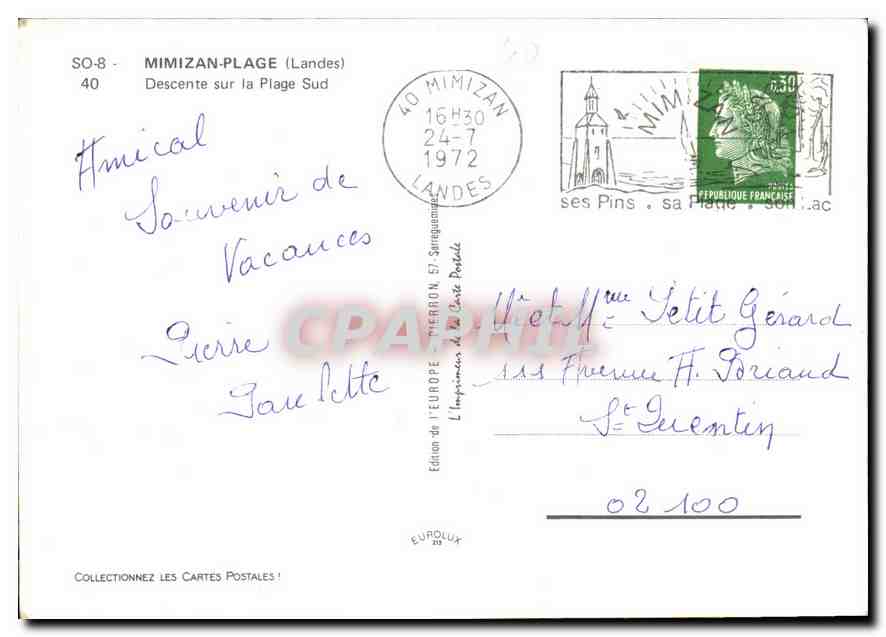 SO-8 - MIMIZAN-PLAGE (Landes)
40 Descente sur la Plage Sud
40 MIMIZAN
16H30
24-7
1972
LANDES
MIMIZAN
0,30
REPUBLIQUE FRANÇAISE
ses Pins . sa Plage . son Lac
Amical
Souvenir de
Vacances
Pierre
Paulette
Edition de l'EUROPE - PIERRON, 57-Sarreguemines
L'Imprimeur de la Carte Postale
CPAPHIL
Mr et Mme Petit Gérard
111 Avenue A. Briand
St Quentin
02 100
EUROLUX
COLLECTIONNEZ LES CARTES POSTALES !